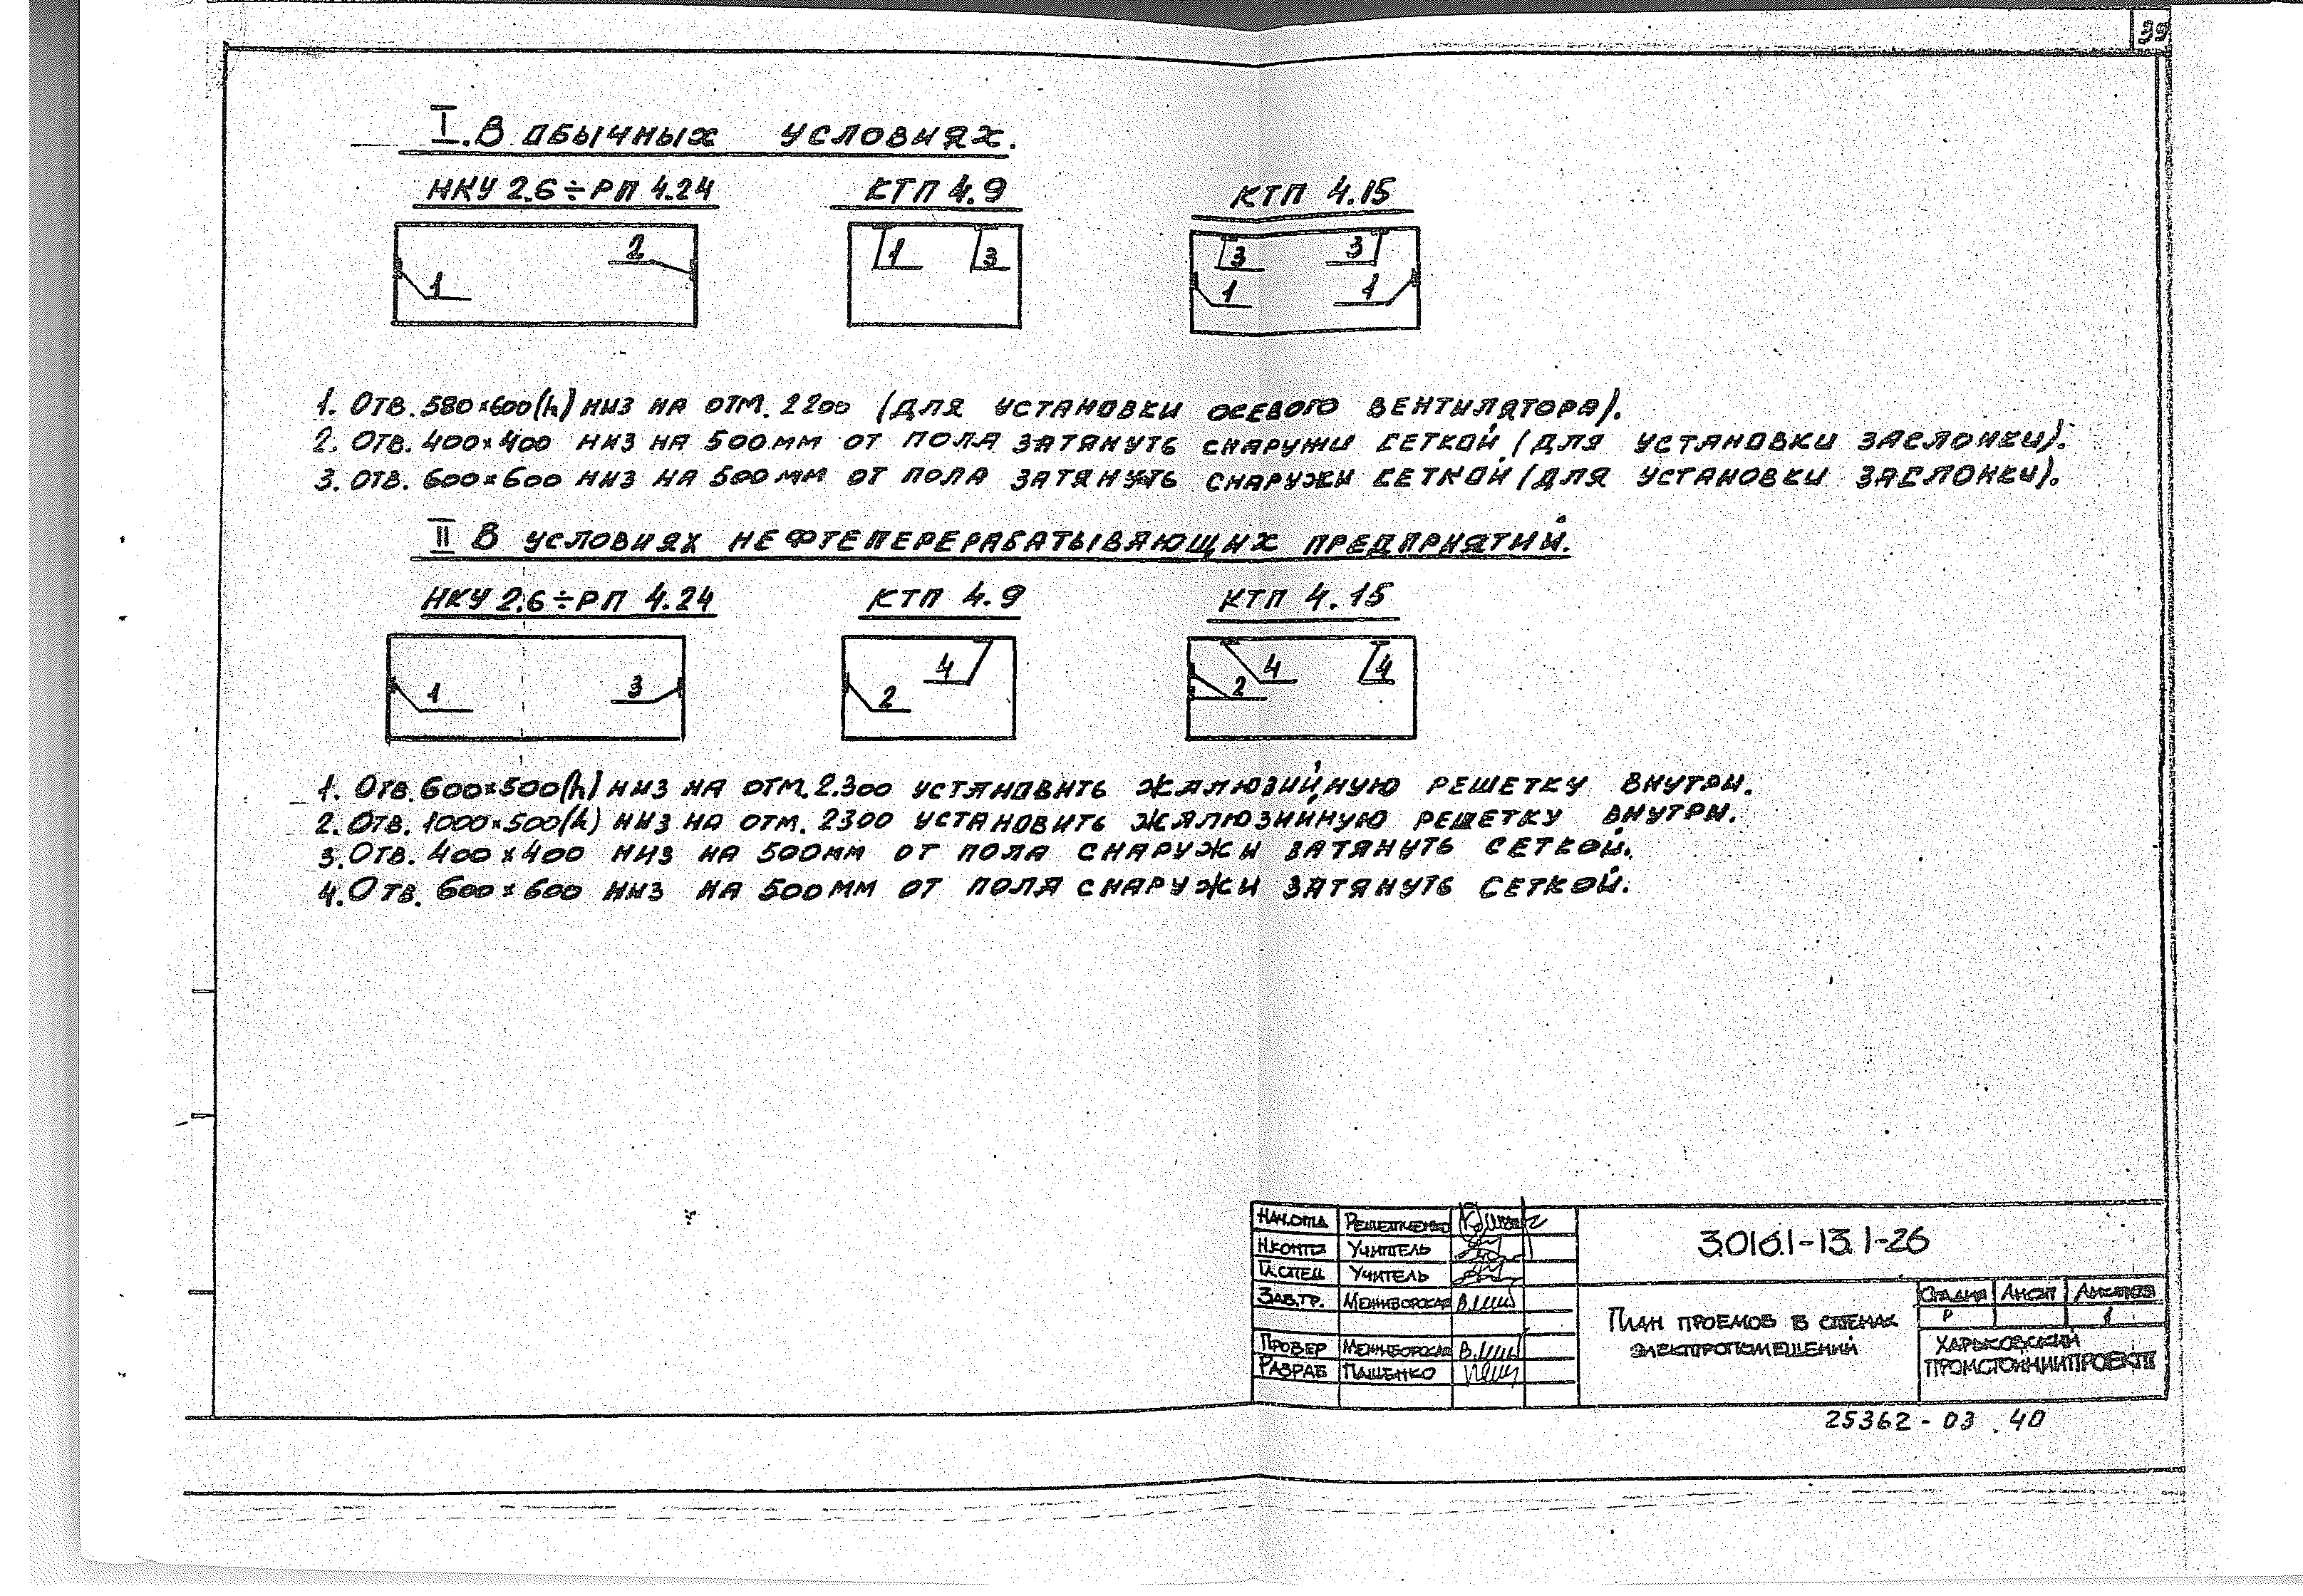 39
I. В обычных условиях.
НКУ 2.6÷РП 4.24 КТП 4.9 КТП 4.15
1 2 1 3 3 3 1 1
1. Отв. 580×600(h) низ на отм. 2200 (для установки осевого вентилятора).
2. Отв. 400×400 низ на 500мм от пола затянуть снаружи сеткой (для установки заслонки).
3. Отв. 600×600 низ на 500мм от пола затянуть снаружи сеткой (для установки заслонки).
II В условиях нефтеперерабатывающих предприятий.
НКУ 2.6÷РП 4.24 КТП 4.9 КТП 4.15
1 3 2 4 4 2 4
1. Отв. 600×500(h) низ на отм. 2.300 установить жалюзийную решетку внутри.
2. Отв. 1000×500(h) низ на отм. 2300 установить жалюзийную решетку внутри.
3. Отв. 400×400 низ на 500мм от пола снаружи затянуть сеткой.
4. Отв. 600×600 низ на 500мм от пола снаружи затянуть сеткой.
Нач.отд
Н.контр Учитель
Гл.спец Учитель
Зав.гр. Межиборская
Провер Межиборская
Разраб Пащенко
3.016.1-13.1-26
План проемов в стенах
электропомещений
Стадия Лист Листов
Р 1
Харьковский
Промстройниипроект
25362-03 40